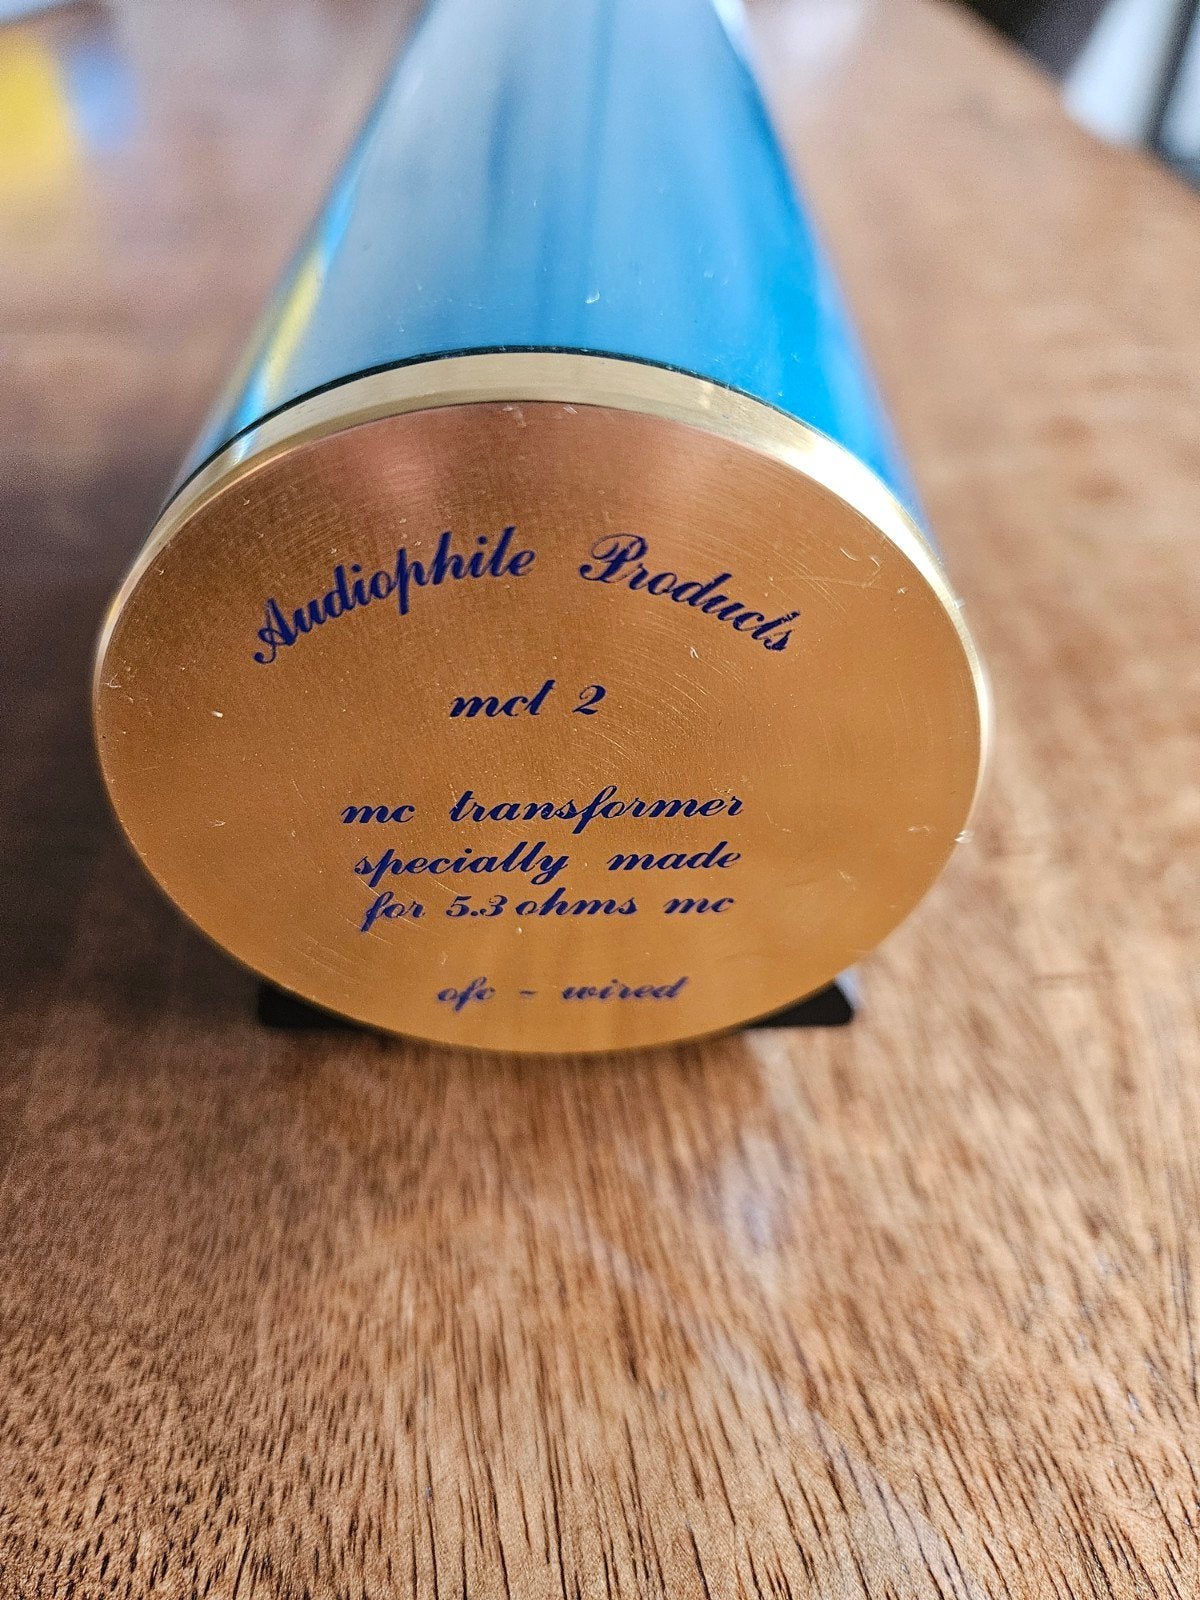 Audiophile Products
mct 2
mc transformer
specially made
for 5.3 ohms mc
ofc - wired